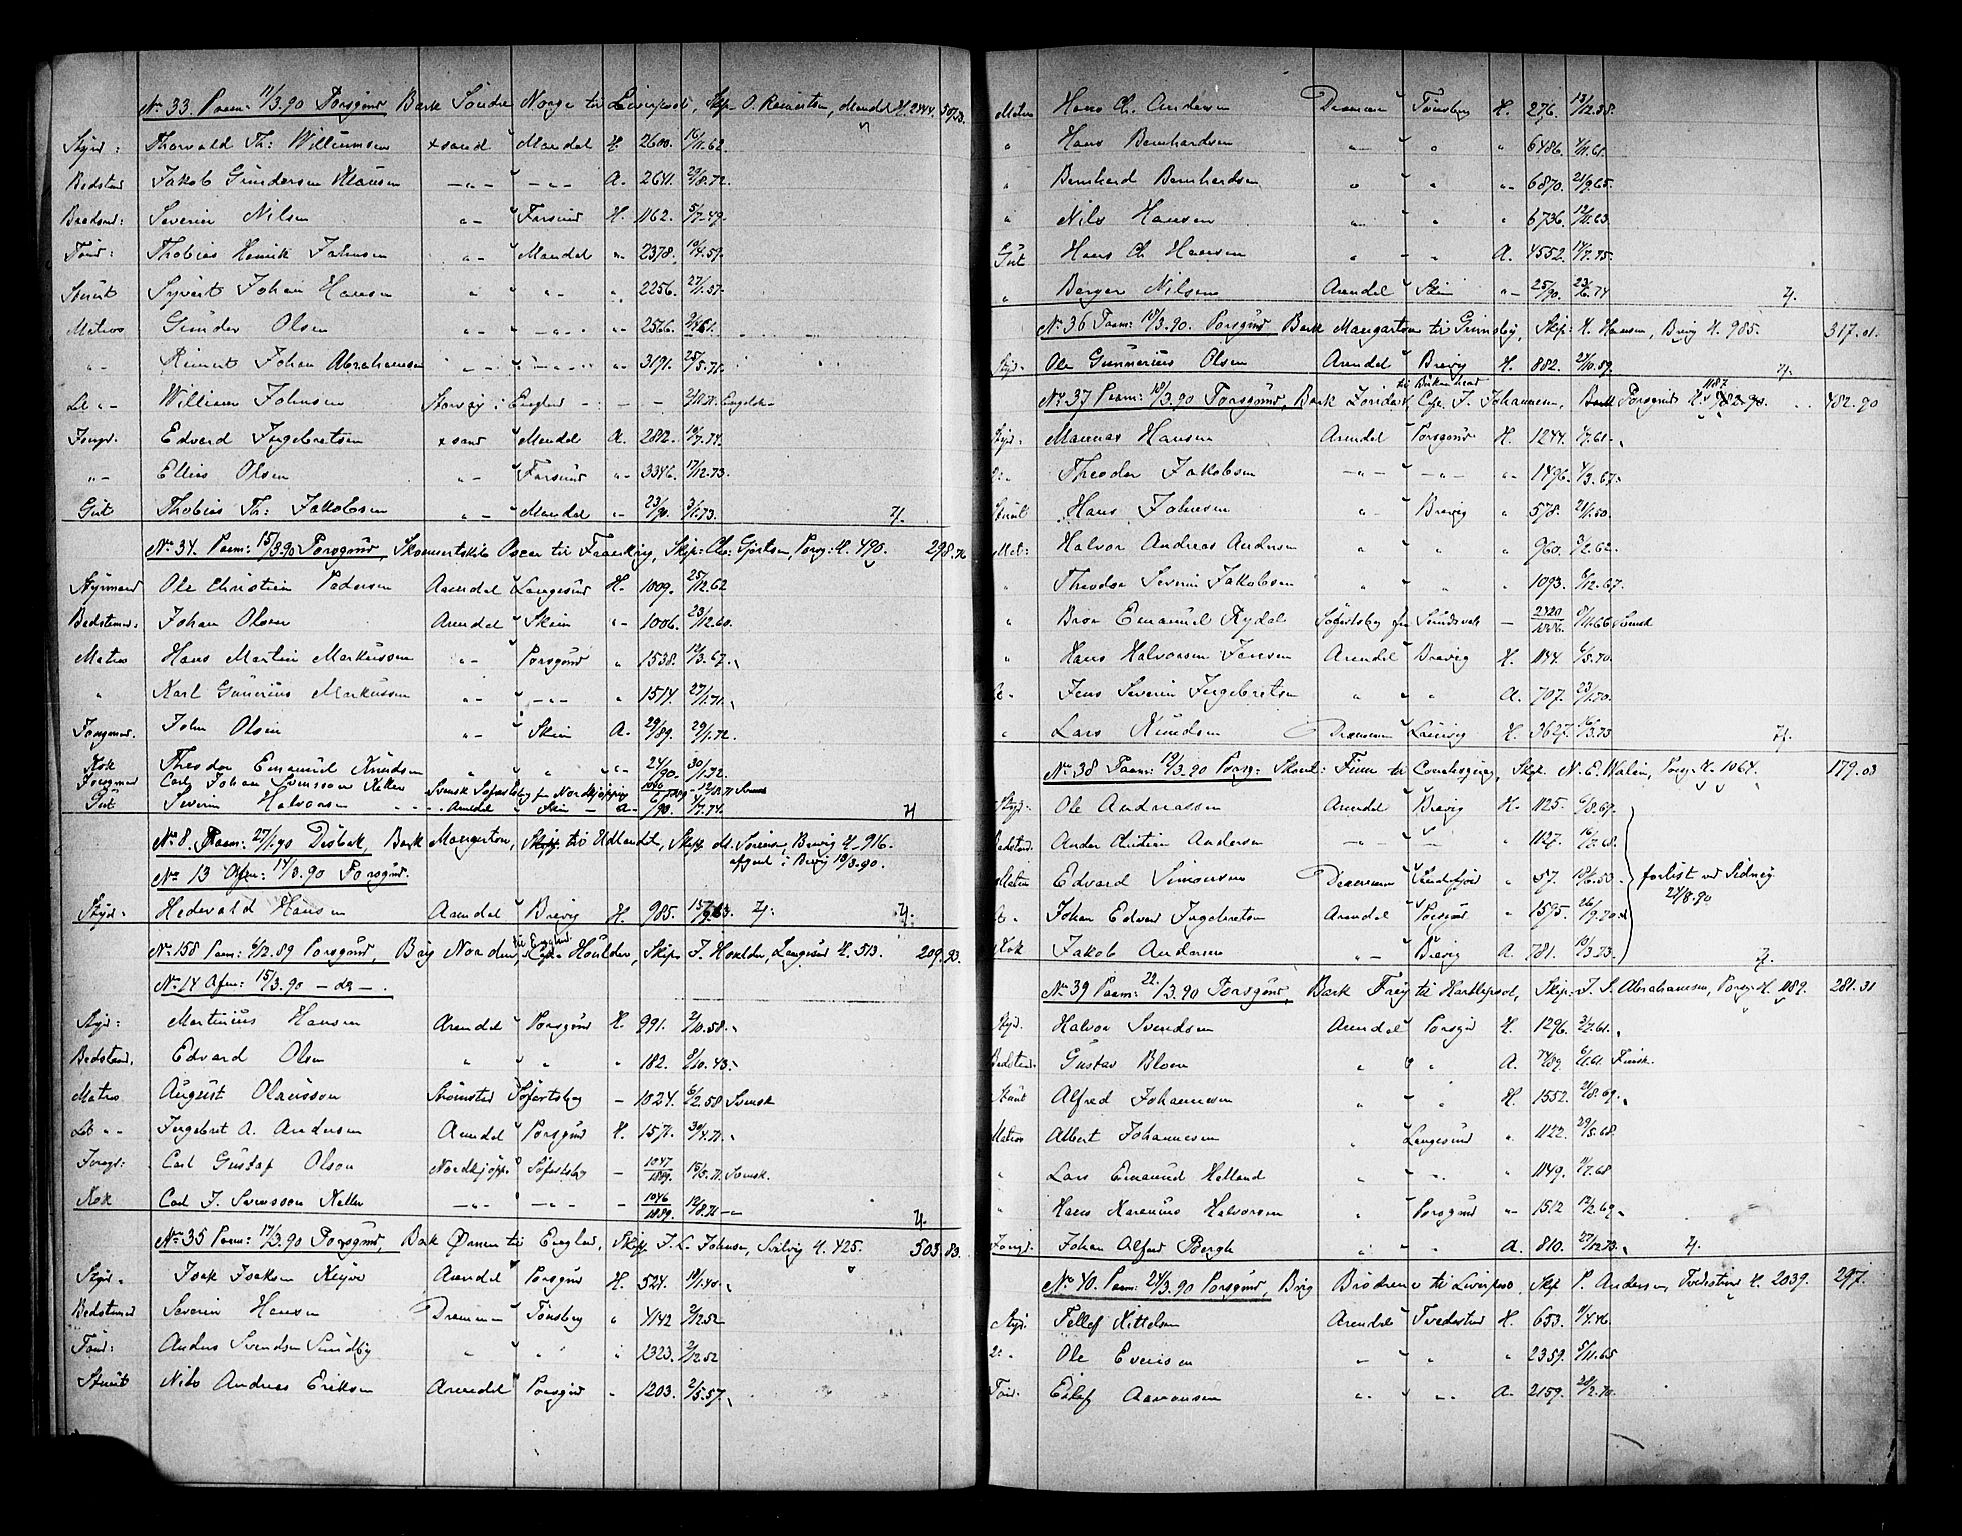 No 33. Paam: 11/3.90 Porsgrund Bark Søndre Norge til Liverpool, Skip. O. Reinertsen, Mandal H. 2444.
Styrd: Thorvald Th: Willumsen xsand Mandal H. 2600. 16/11.62.
Bedstmd Jakob Gundersen Klausen -"- -"- A. 2641. 29/8.72.
Severin Nilsen "- Farsund H. 1162. 5/7-49.
Tømd: Thobias Henrik Johnsen "- Mandal "- 2378. 10/4.59.
Stuert Syvert Johan Hansen " "- " 2256. 27/1.57.
Matros Gunder Olsen 2566.
"- Reinert Johan Abrahamsen 3191. 25/5.71.
Let "- William Johnsen England - - - Engelsk
Jungd. Edvard Ingebretsen xsand Mandal A. 2812. 19/7.74.
"- Ellias Olsen "- Farsund "- 3346. 17/12.73.
Gut Thobias Th: Jakobsen "- Mandal "- 23/90. 3/1.73.
No 34. Paam: 15/3.90 Porsgrund, Skonnertskib Oscar til Skip: Chr: Gjertsen, Porsg: H. 490. 298.
Styrmand Ole Christian Pedersen Arendal Langesund H. 1009. 25/12.62
Bedstemd: Johan Olsen Arendal Skien "- 1006. 23/12.60.
Matros Hans Martin Markussen "- Porsgrund " 1538. 12/3.67.
" Karl Gunerius Markussen "- -"- " 1514. 27/1.71.
Jungmd. John Olsen "- Skien A- 29/89. 29/1.72.
Kok Theodor Emanuel Knudsen " " "- 24/90. 30/1.72.
Jungmd Carl Johan Svensson Keller Svensk Søfartsby fra Nordkjøping 1046/1889 - 19/8.71 Svensk
Gut Severin Halvorsen Arendal Skien A- 6/90. 1/7.74.
No 8. Paam: 27/1.90 Drøbak, Bark Mangerton, til Udlandet, Skip. M. Sørensen, Brevig H. 916.
afgaaet i Brevig 18/3.90.
No 13 Afm: 14/3.90 Porsgrund.
Styrd. Hedevald Hansen Arendal Brevig H. 985. 15/9.63.
No 158 Paam: 6/12.89 Porsgrund, Brig Norden, til England, Skip. J. Houlder, Langesund H. 513. 209.93.
No 14 Afm: 15/3.90 - do - .
Styrd: Martinius Hansen Arendal Porsgrund H. 991. 2/10.58.
Bedstmd. Edvard Olsen " " " 182. 9/10.43.
Matros August Olausson Strømstad Søfartsby - 1024. 6/2.58 Svensk
Let "- Ingebret A. Andersen Arendal Porsgrund H. 1571. 30/4.71.
Jungd: Carl Gustaf Olson Nordkjøp: Søfartsby - 1047/1889. 15/5.71. Svensk.
Kok Carl J. Svensson Keller -"- -"- - 1046/1889. 19/8.71 -"
No 35 Paam: 17/3.90 Porsgrund, Bark Ørnen til England, Skip J. L. Johnsen, H. 425. 503.83.
Styrd. Isak Isaksen Arendal Porsgrund H. 524. 19/1.40.
Bedstemd Severin Hansen Drammen Tønsberg " 4142 2/12.52
Tømd: Anders Svendsen Sundby " " " 1323. 2/12.52
Stuert Nils Andreas Eriksen Arendal Porsgrd " 1203. 2/5.57.
Matros Hans Ch. Andersen Drammen Tønsberg H. 276. 13/12.38.
" Hans Bernhardsen "- " " 6486. 4/11.61.
" Bernhard Bernhardsen " " "- 6870. 21/9.65.
" Nils Hansen " " " 6736. 12/11.63
Gut Hans Ch. Hansen " - " A. 4552. 17/7.75.
" Birger Nilsen Arendal Skien "- 25/90. 23/6.74
No 36 Paam: 18/3.90. Porsgrund Bark Mangerton til Grimsby, Skip: H. Hansen, Brevig H. 985. 317.01.
Styd. Ole Gunnerius Olsen Arendal Brevig H. 882. 21/10.59.
til Birkenhead
No 37 Paam: 19/3.90 Porsgrund, Bark Capt. J. Johannesen, Porsgrund H. 1187 482.90
Styrd: Mannas Hansen Arendal Porsgrund H. 1244. 1/7.61.
2: - Theodor Jakobsen -"- -"- "- 1496. 4/3.67.
Stuert Hans Johnsen "- Brevig " 578. 21/1.50.
Mat: Halvor Andreas Andersen " " " 960. 3/2.62.
" Theodor Severin Jakobsen " " " 1093. 6/12.67.
" Bror Emanuel Rydal Søfartsby fra Sundsvall - 2420/1886. 9/11.66 Svensk
" Hans Halvorsen Jensen Arendal Brevig H. 1144. 6/5.70.
Let - Jens Severin Ingebretsen " " A. 707. 23/1.70.
" Lars Knudsen Drammen Laurvig H. 3627. 16/3.73
No 38 Paam: 19/3.90 Porsg: Skonl: Finn til Skip. N. E. Walin, Porsg H. 1064. 179.03
Styrd: Ole Andreassen Arendal Brevig H. 1125. 6/8.67.
Bedstmd. Anders Kristian Andersen -"- -"- " 1127. 16/2.68.
Matros Edvard Simonsen Drammen Sandefjord " 57. 19/6.53. forlist ved Sidney 27/8.90
Let - Johan Edvard Ingebretsen Arendal Porsgrd " 1595. 26/9.70
Kok Jakob Andersen "- Brevig A. 781. 10/3.73.
No 39 Paam: 22/3.90 Porsgrund, Bark Frey til Hartlepool, Skip. J. S. Abrahamsen, Porsg: H. 1189. 281.31
Styrd. Halvor Svendsen Arendal Porsgrd H. 1296. 3/7.61.
Bedstmd. Gustav Blom " " A. 74/89. 6/1.61 Finsk.
Stuert Alfred Johannesen " " H. 1552. 21/8.69.
Matros Albert Johannesen " Langesund " 1122. 29/5.68.
" Lars Emanuel Helland " " " 1149. 11/7.68
" Hans Karenius Halvorsen " Porsgrund "- 1512 12/2.69.
Jungd. Johan Alfred Bergh " " A. 810. 27/12.73.
No 40. Paam: 24/3.90 Porsgrund, Brig Brødrene til Liverpool, Skip P. Andersen, Tvedestrand H. 2039. 297.
Styd. Tellef Kittelsen Arendal Tvedestrand H. 653. 11/4.46
2: - Ole Evensen "- " " 2359. 5/11.65
Tømd. Eilef Aaronsen "- "- A. 2159. 28/2.70.